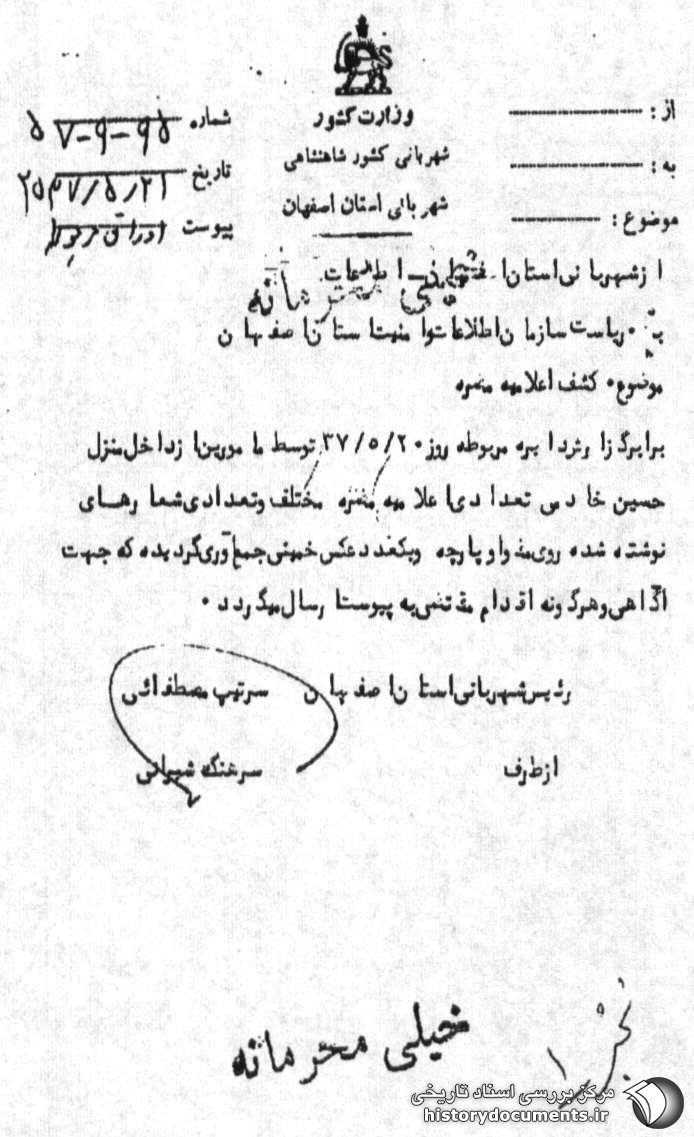 وزارت کشور
شهربانی کشور شاهنشاهی
شهربانی استان اصفهان
از :
به :
موضوع :
شماره ۹۵-۹-۷ ۵
تاریخ ۲۵۳۷/۵/۲۱
پیوست اوراق
از شهربانی استان اطلاعات
به ریاست سازمان اطلاعات و امنیت استان اصفهان
موضوع کشف اعلامیه مضره
برابر گزارش دایره مربوطه روز ۳۷/۵/۲۰ توسط مامورین از داخل منزل
حسین خادمی تعدادی اعلامیه مضره مختلف و تعدادی شعارهای
نوشته شده روی مقوا و پارچه و یکعدد عکس خمینی جمع آوری گردیده که جهت
آگاهی و هرگونه اقدام مقتضی به پیوست ارسال میگردد .
رئیس شهربانی استان اصفهان سرتیپ مصطفائی
از طرف سرهنگ شیرانی
خیلی محرمانه
مرکز بررسی اسناد تاریخی
historydocuments.ir